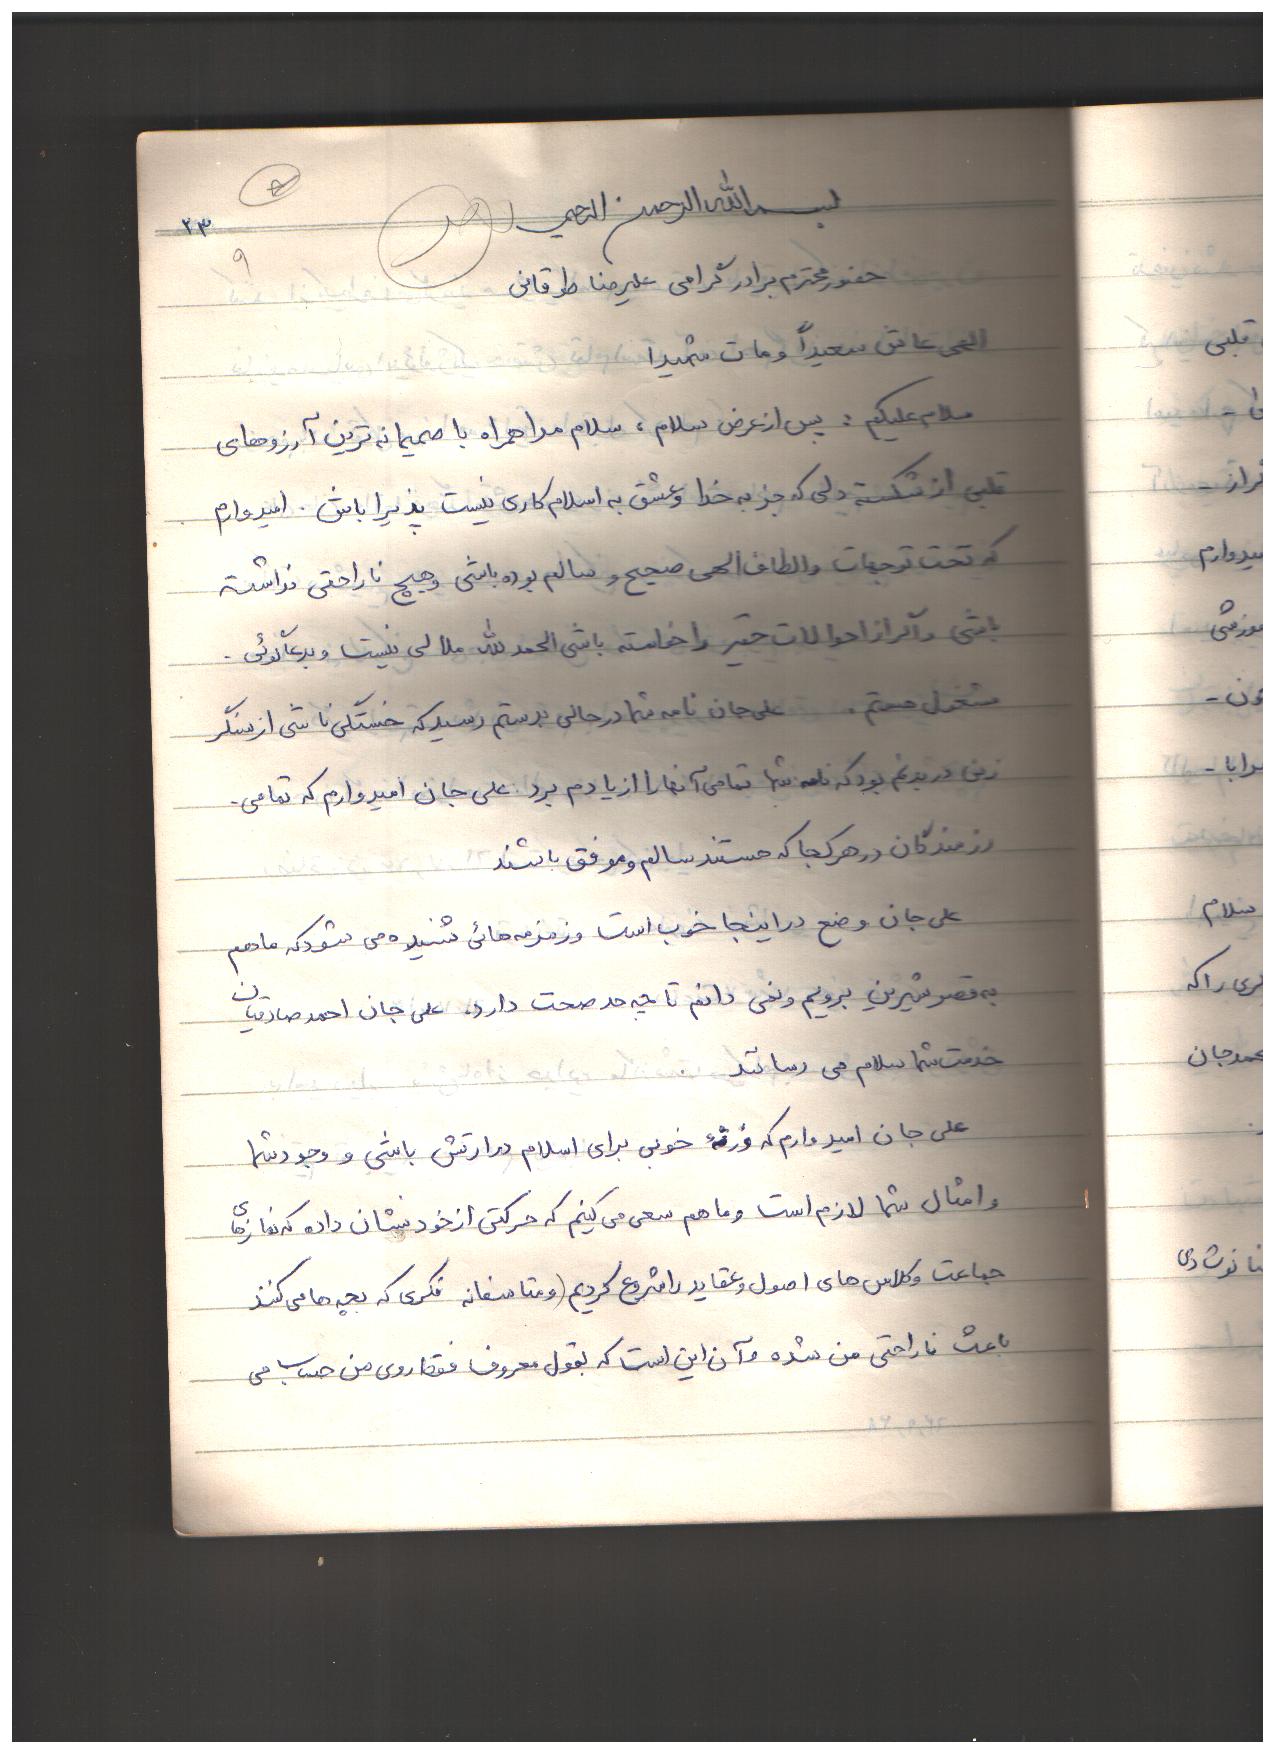 بسم الله الرحمن الرحیم
۲۳
۹
حضور محترم برادر گرامی علیرضا طوقانی
الهی عاش سعیداً و مات شهیدا
سلام علیکم : پس از عرض سلام ، سلام مرا همراه با صمیمانه ترین آرزوهای
قلبی از شکسته دلی که جز به خدا و عشق به اسلام کاری نیست پذیرا باش . امیدوارم
که تحت توجهات و الطاف الهی صحیح و سالم بوده باشی و هیچ ناراحتی نداشته
باشی و اگر از احوالات حقیر را خواسته باشی الحمد لله ملالی نیست و بدعاگوئی -
مشغول هستم . علی جان نامه شما در حالی بدستم رسید که خستگی ناشی از سنگر
زنی در بدنم بود که نامه شما تمامی آنها را از یادم برد . علی جان امیدوارم که تمامی -
رزمندگان در هر کجا که هستند سالم و موفق باشند
علی جان وضع در اینجا خوب است و زمزمه هائی شنیده می شود که ما هم
به قصر شیرین برویم و نمی دانم تا چه حد صحت دارد، علی جان احمد صادقیان
خدمت شما سلام می رساند
علی جان امیدوارم که خوبی برای اسلام در ارتش باشی و وجود شما
و امثال شما لازم است و ما هم سعی می کنیم که حرکتی از خود نشان داده که نمازهای
جماعت و کلاس های اصول و عقاید را شروع کردیم (و متاسفانه فکری که بچه ها می کنند
باعث ناراحتی من شده و آن این است که بقول معروف فقط روی من حساب می
قلبی
امیدوارم
سلام
را که
محمد جان